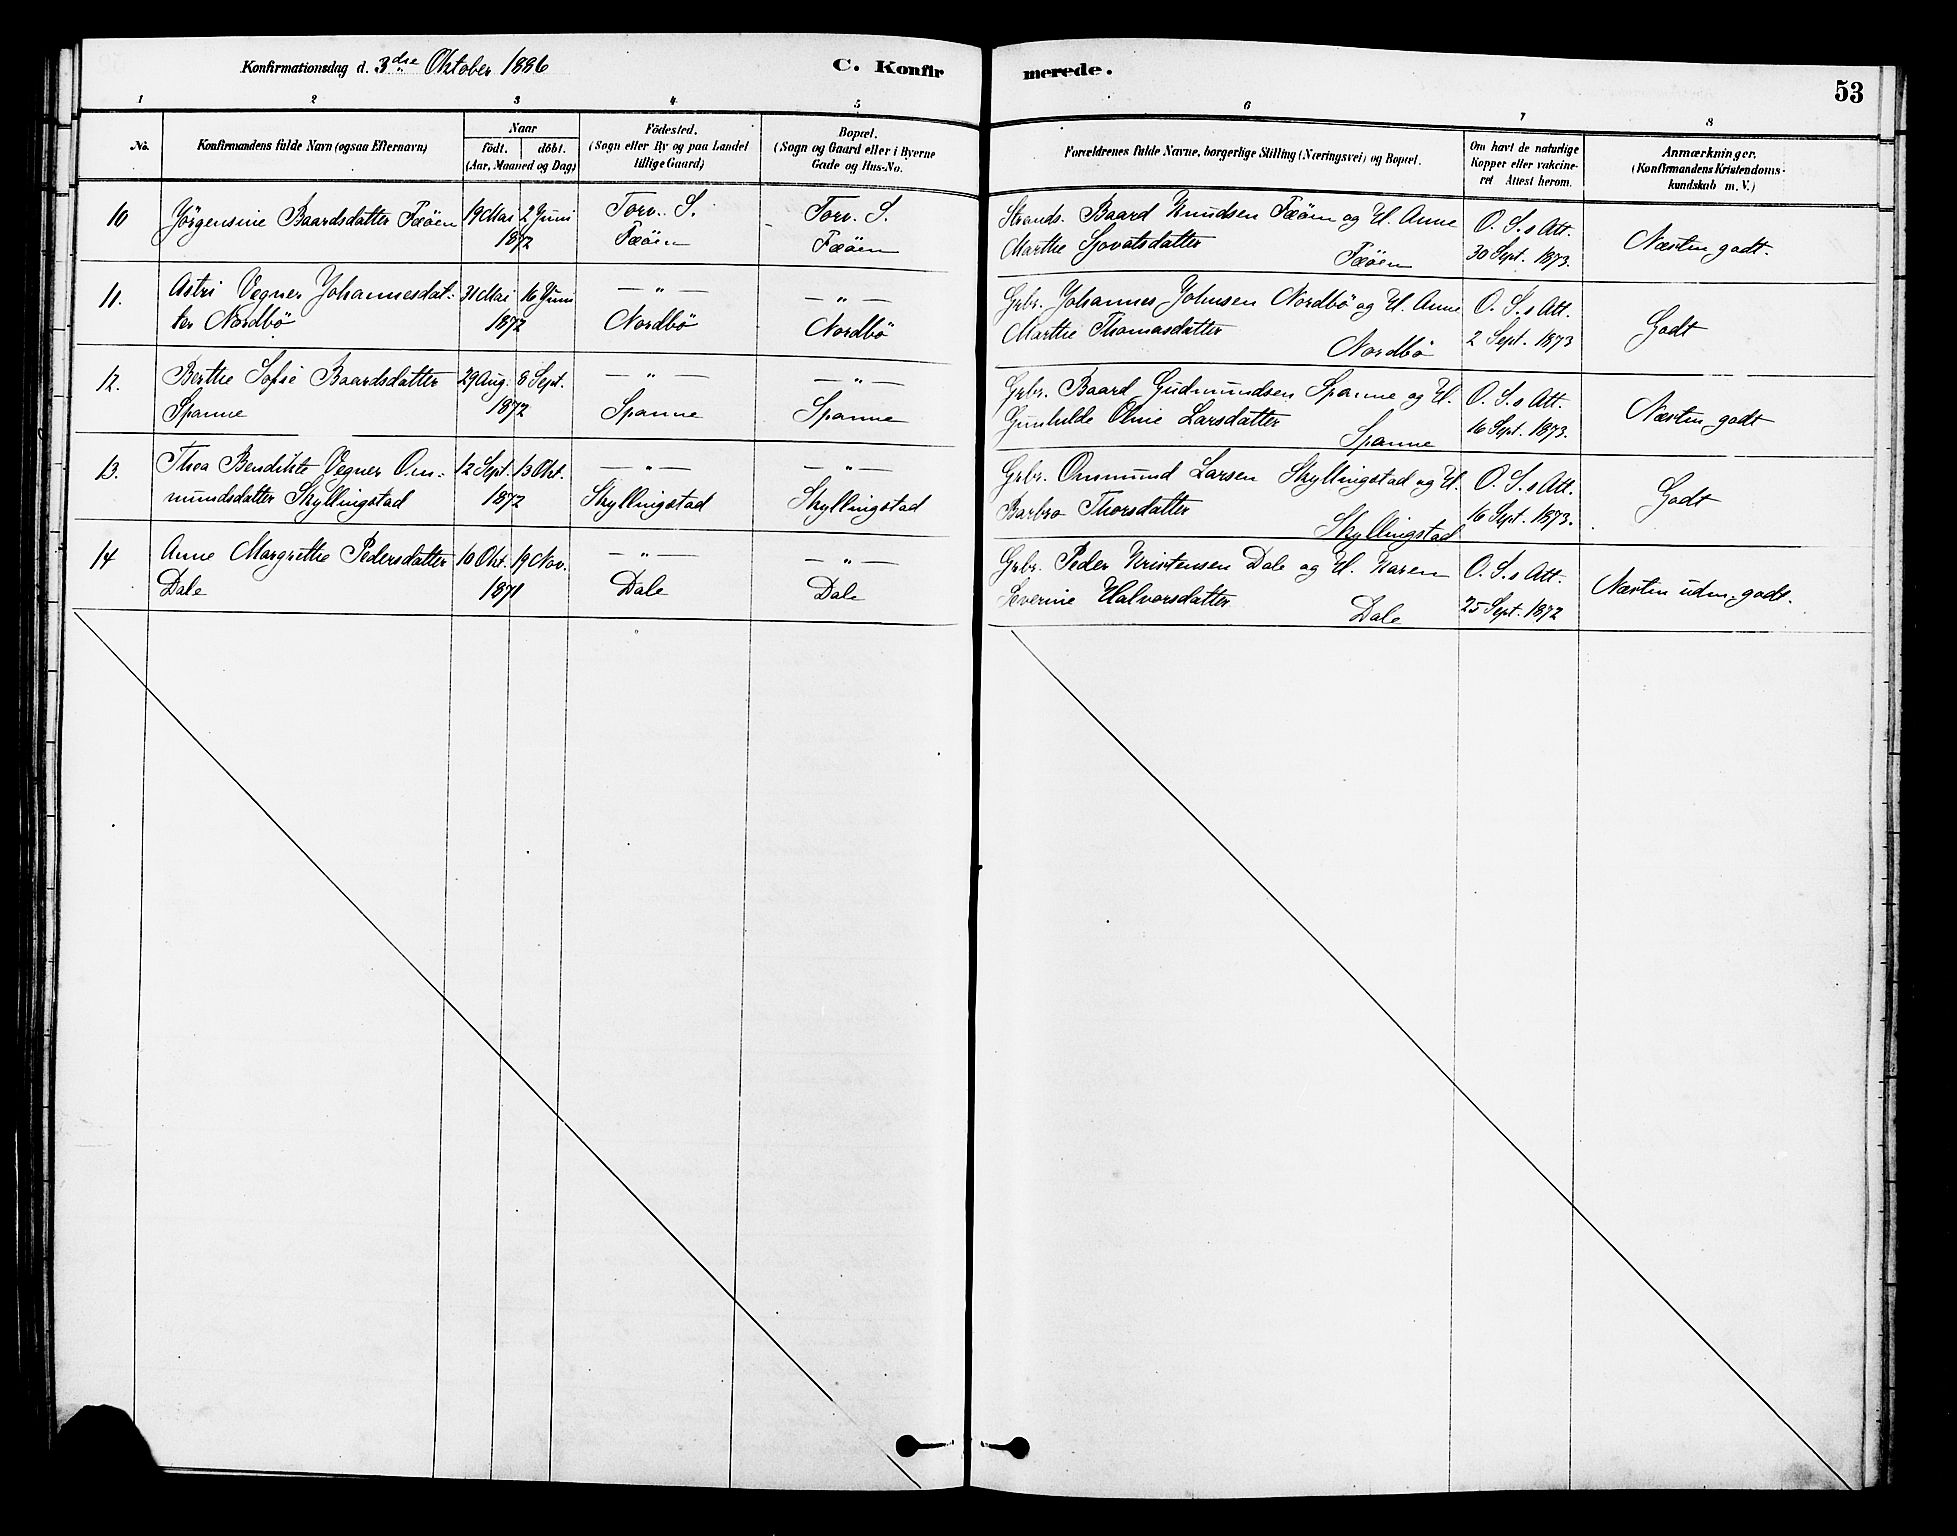 Konfirmationsdag d. 3die Oktober 1886
C. Konfirmerede.
53
1 2 3 4 5 6 7 8
No. Konfirmandens fulde Navn (ogsaa Efternavn) Naar födt. döbt. (Aar, Maaned og Dag) Födested. (Sogn eller By og paa Landet tillige Gaard) Bopæl. (Sogn og Gaard eller i Byerne Gade og Hus-No. Forældrenes fulde Navne, borgerlige Stilling (Næringsvei) og Bopæl. Om havt de naturlige Kopper eller vakcineret Attest herom. Anmærkninger. (Konfirmandens Kristendomskundskab m. V.)
10 Jörgensine Baardsdatter Fæöen 19 Mai 2 Juni Torv. S. Torv. S. Strands. Baard Knudsen Fæöen og H. Anne O. S.s Att. Næsten godt.
1872 Fæöen Fæöen Marthe Sjovatsdatter Fæöen 30 Sept. 1873.
11. Astri Vegner Johannesdat- 31 Mai 16 Juni — " — — " — Grbr. Johannes Johnsen Nordbö og H. Anne O. S.s Att. Godt
ter Nordbö 1872 Nordbö Nordbö Marthe Thomasdatter Nordbö 2 Sept. 1873
12. Berthe Sofie Baardsdatter 29 Aug. 8 Sept. — " — — " — Grbr. Baard Gudmundsen Spanne og H. O. S.s Att. Næsten godt
Spanne 1872 Spanne Spanne Gunhilde Oline Larsdatter Spanne 16 Sept. 1873.
13. Thea Bendikte Vegner Om- 12 Sept. 13 Okt. — " — — " — Grbr. Ommund Larsen Skyllingstad og H. O. S.s Att. Godt
mundsdatter Skyllingstad 1872 Skyllingstad Skyllingstad Barbro Thorsdatter Skyllingstad 16 Sept. 1873.
14 Anne Margrethe Pedersdatter 10 Okt. 19 Nov. — " — — " — Grbr. Peder Kristensen Dale og H. Karen O. S.s Att. Næsten udm. godt.
Dale 1871 Dale Dale Severine Halvorsdatter Dale 25 Sept. 1872